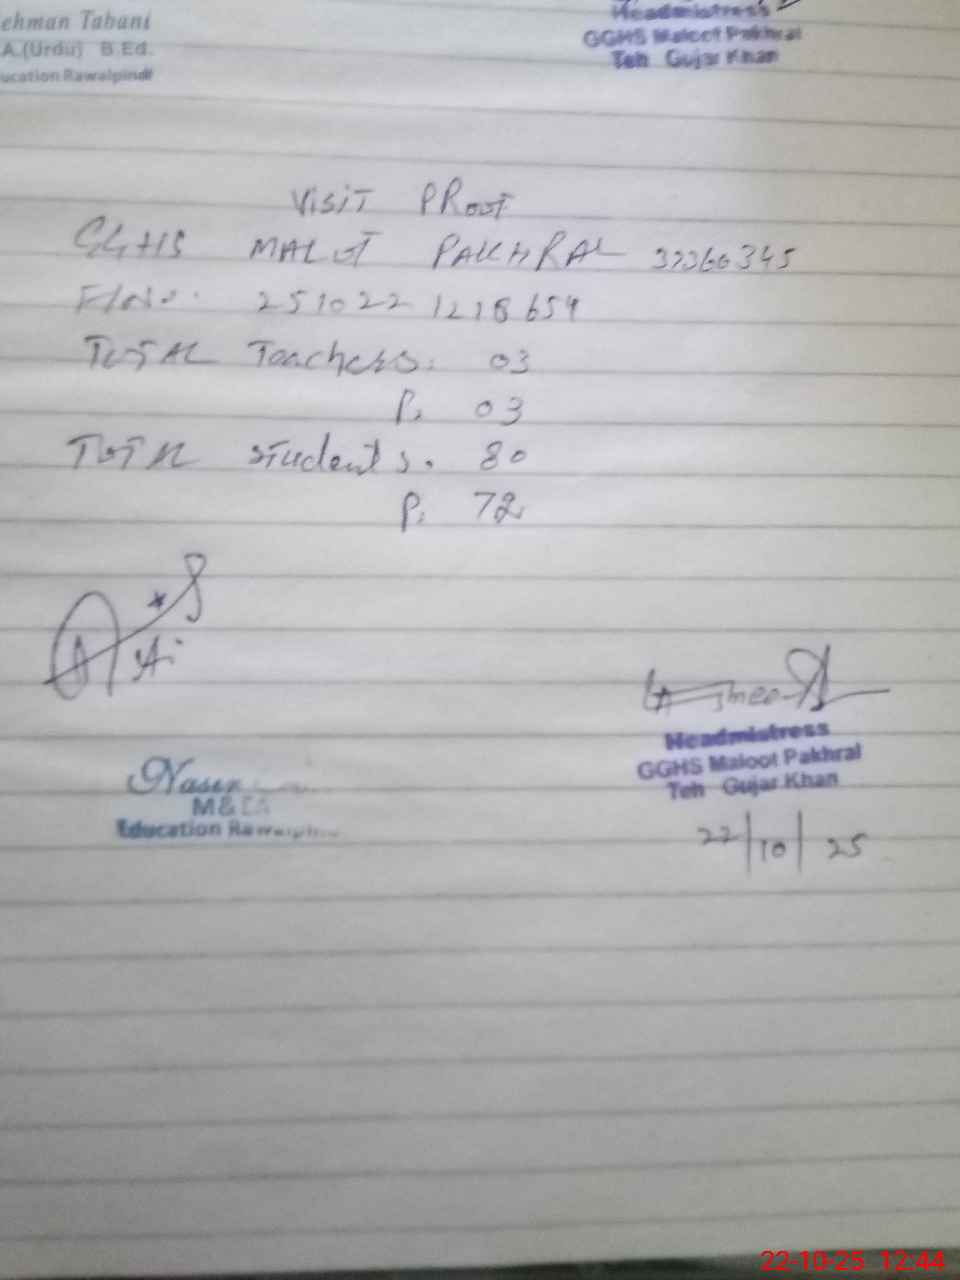 ehman Tabani
A.(Urdu) B.Ed.
ucation Rawalpindi
Headmistress
GGHS Maloot Pakhral
Teh Gujar Khan
VISIT PRoof
GGHS MALOT PAKHRAL 37360345
F/No. 251022 1218654
TOTAL Teachers. 03
P. 03
TOTAL Students. 80
P. 72
Headmistress
GGHS Maloot Pakhral
Teh Gujar Khan
M&EA
Education Rawalpin
22/10/25
22-10-25 12:44